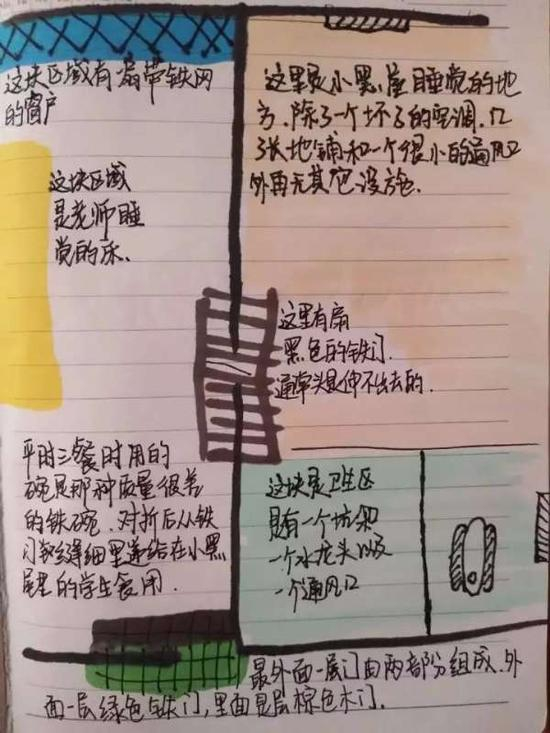 这块区域有扇带铁网
的窗户
这块区域
是老师睡
觉的床.
这里是小黑屋睡觉的地
方.除了一个坏了的空调.几
张地铺和一个很小的通风口
外再无其它设施.
这里有扇
黑色的铁门.
通常头是伸不出去的.
平时三餐时用的
碗是那种质量很差
的铁碗.对折后从铁
门缝隙里递给在小黑
屋里的学生食用.
这块是卫生区
只有一个坑和
一个水龙头以及
一个通风口
最外面一层门由两部分组成.外
面一层绿色铁门,里面是层棕色木门.